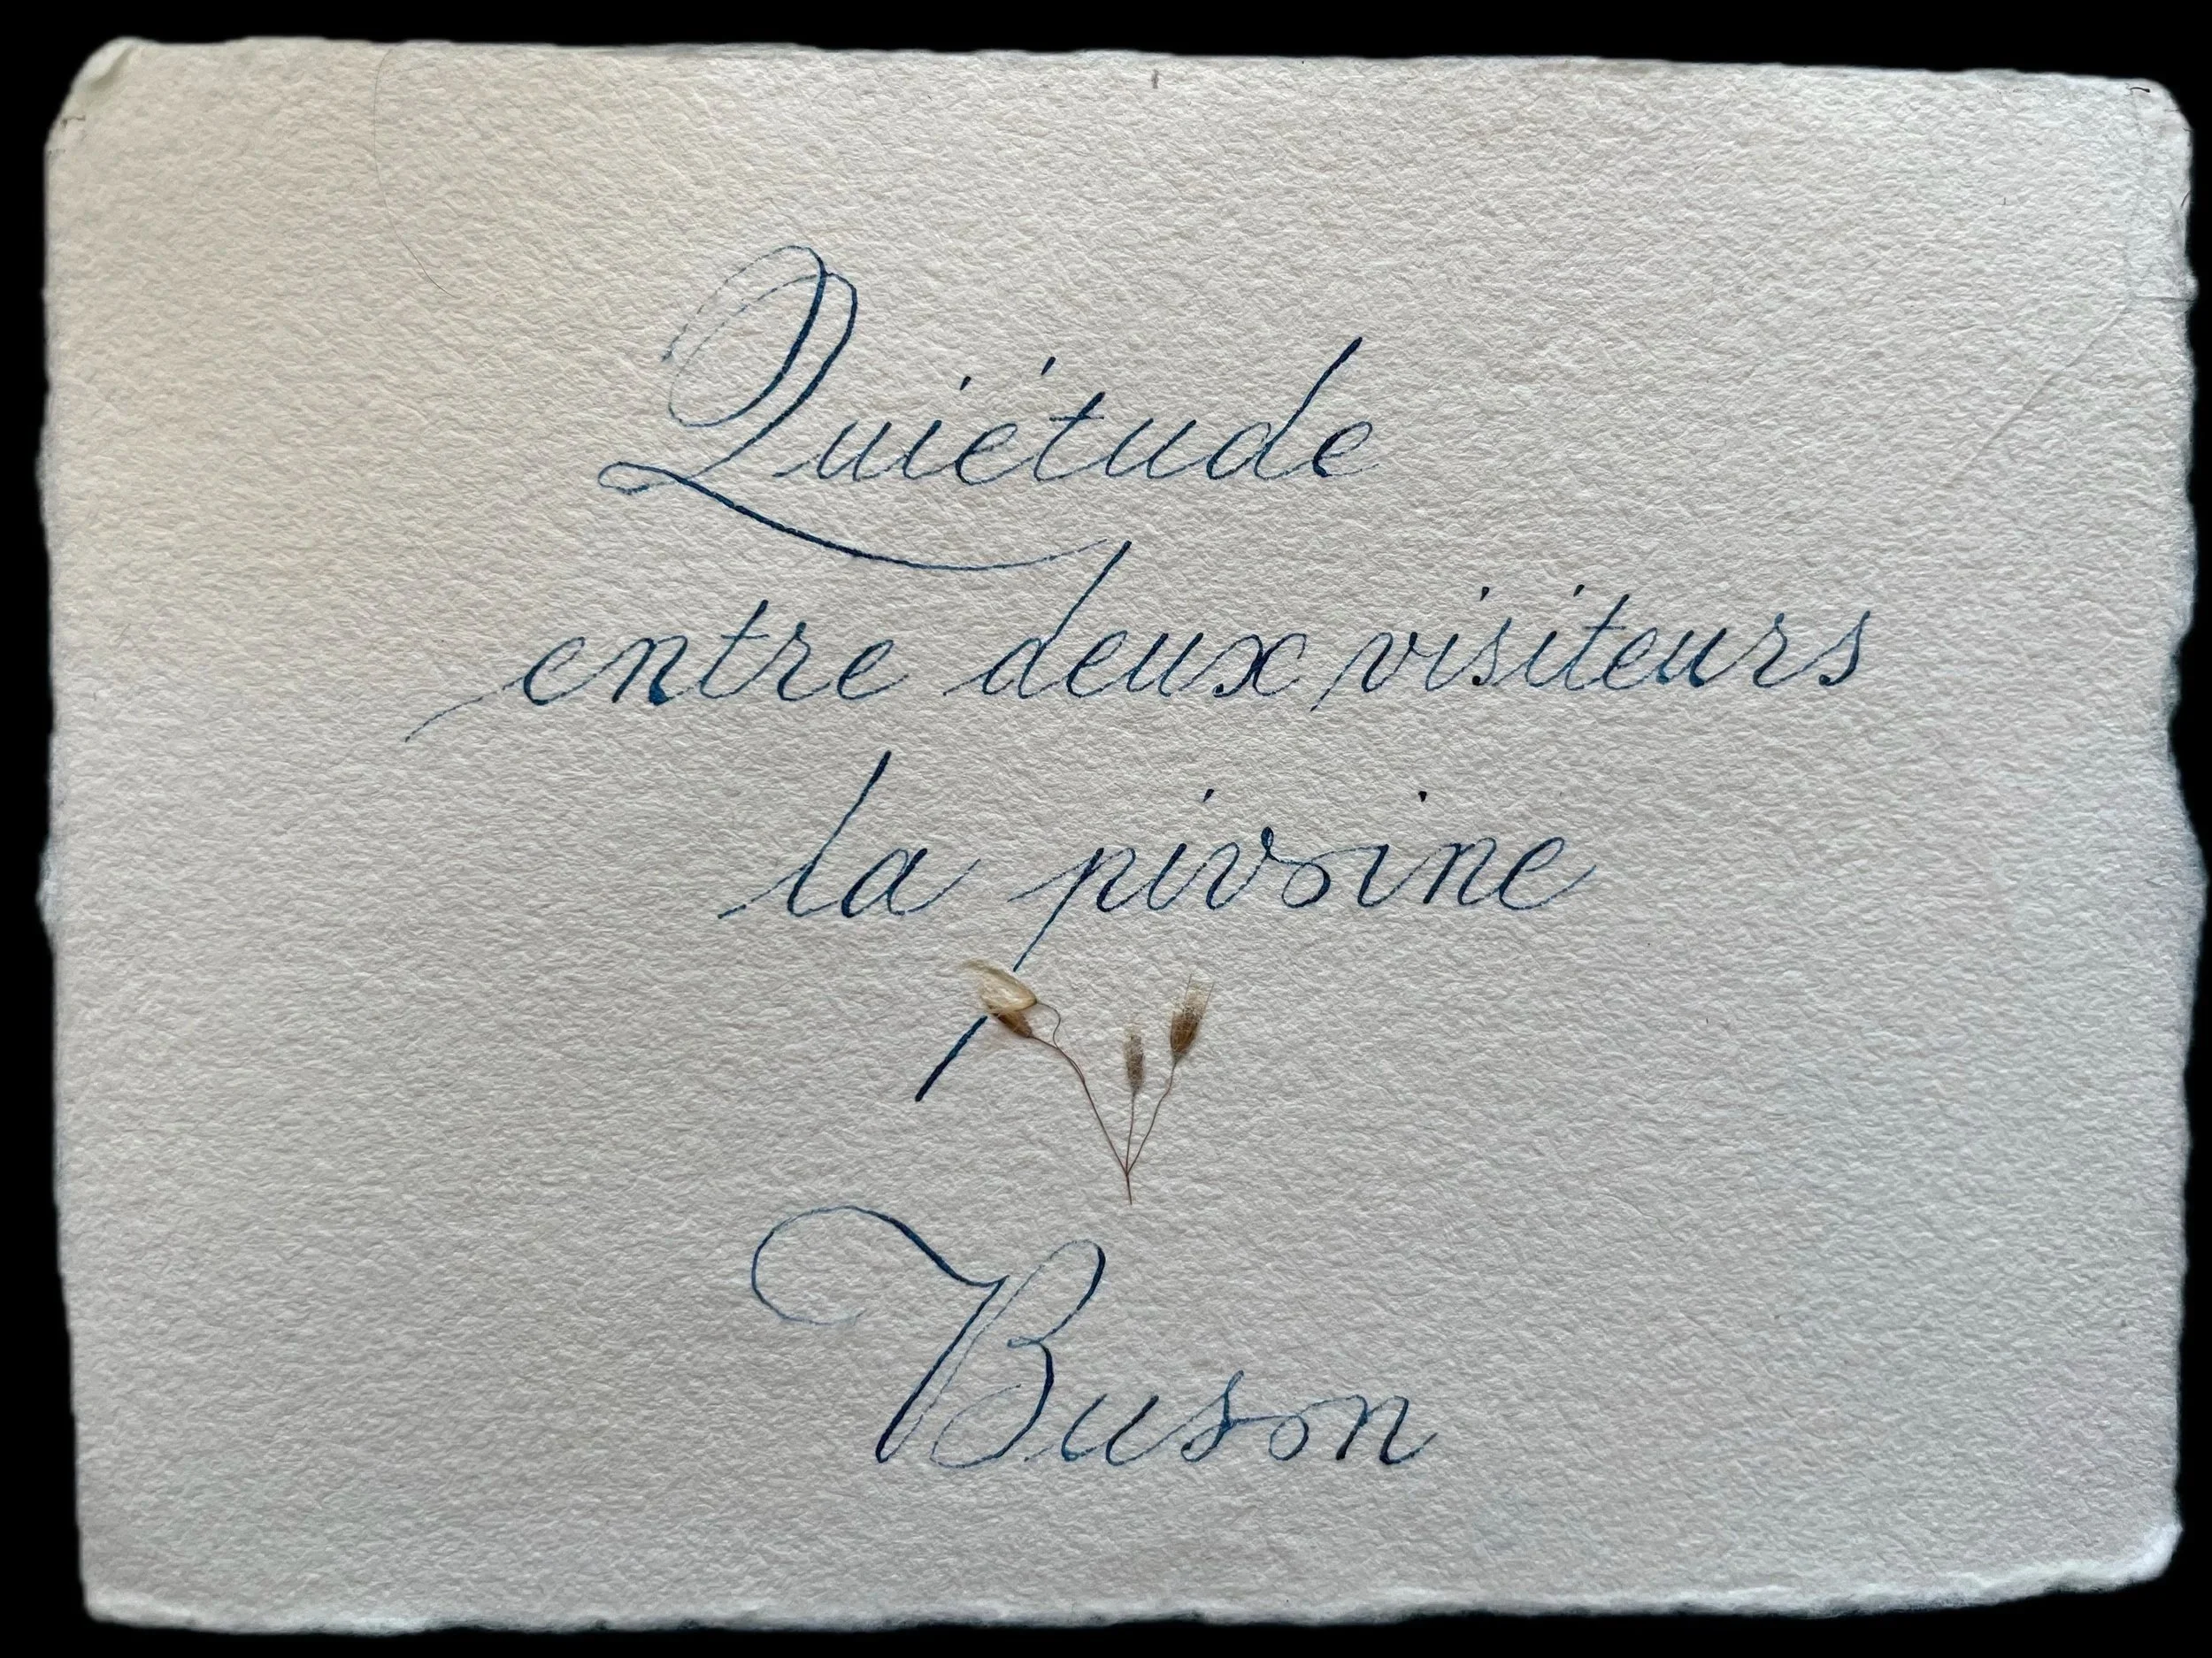 Quiétude
entre deux visiteurs
la pivoine
Buson